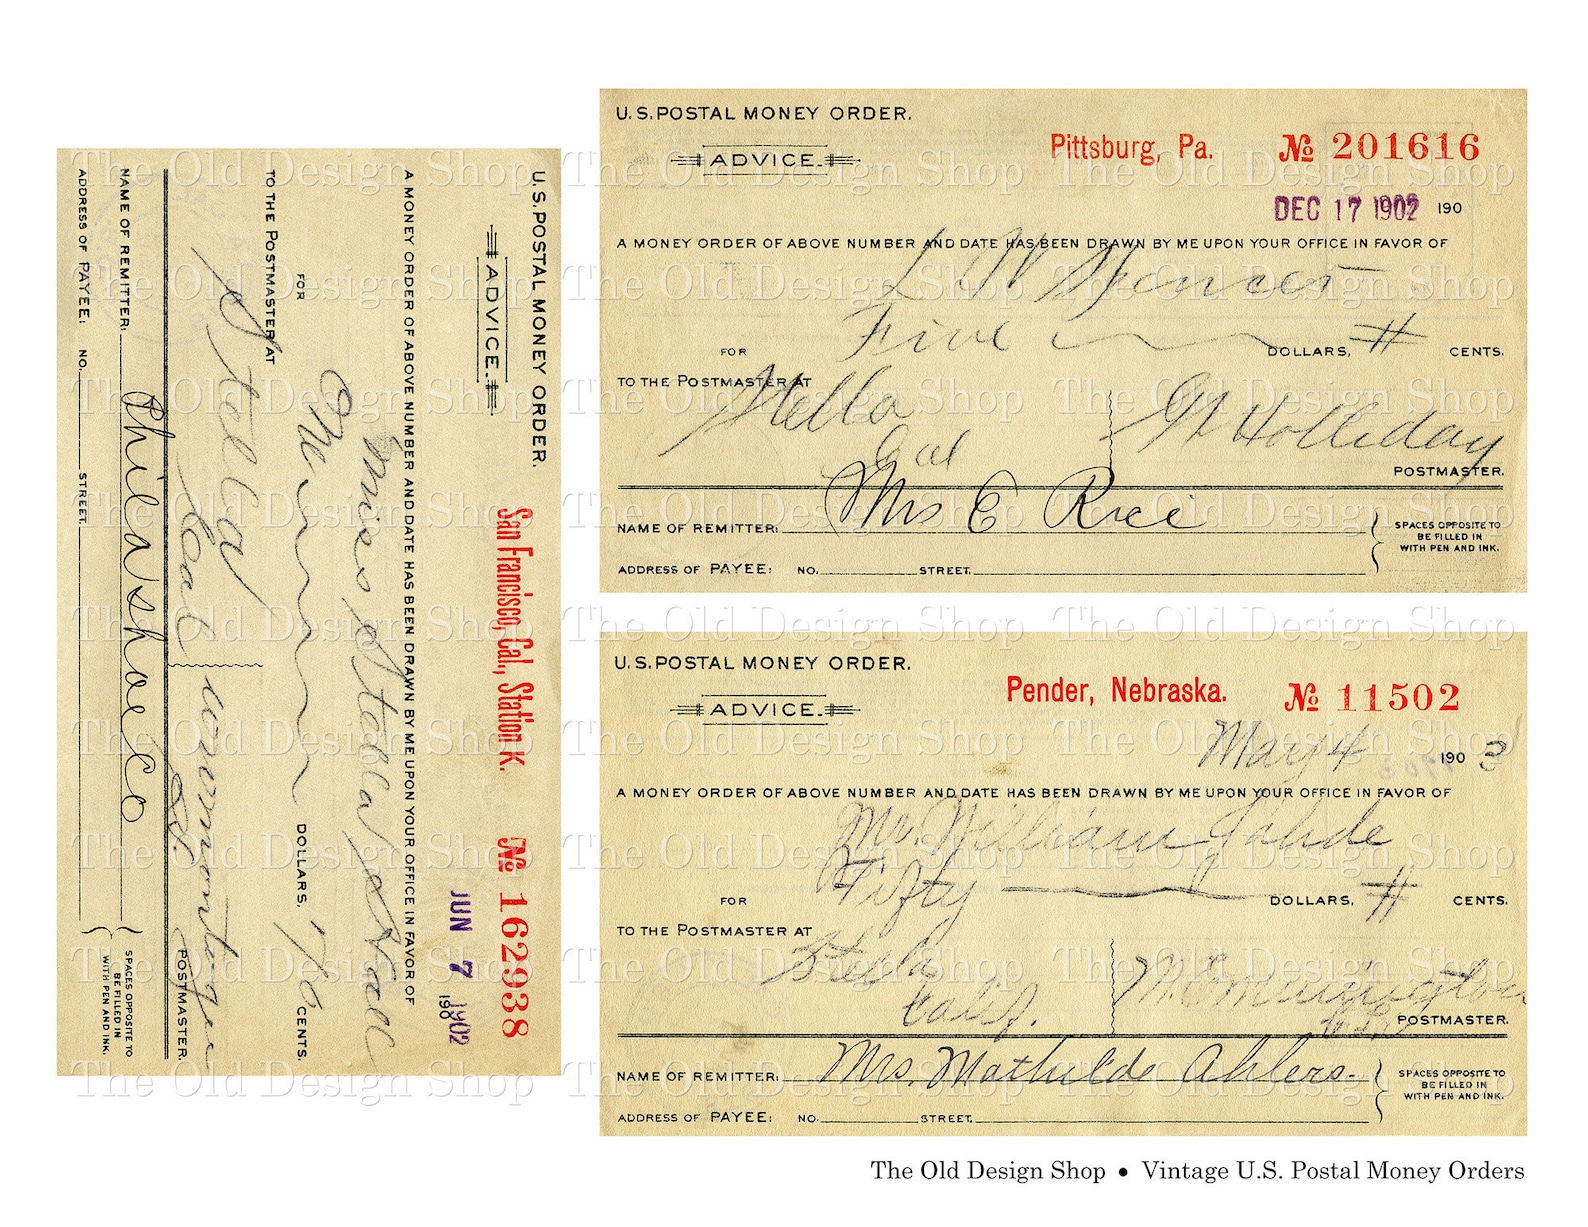 U.S. POSTAL MONEY ORDER.
ADVICE.
San Francisco, Cal., Station K. № 162938
JUN 7 1902 190
A MONEY ORDER OF ABOVE NUMBER AND DATE HAS BEEN DRAWN BY ME UPON YOUR OFFICE IN FAVOR OF
Miss Stella
FOR DOLLARS, CENTS.
TO THE POSTMASTER AT
Stella
Cal
POSTMASTER.
NAME OF REMITTER: Phila Shoe Co
ADDRESS OF PAYEE: NO. STREET.
SPACES OPPOSITE TO
BE FILLED IN
WITH PEN AND INK.
U.S. POSTAL MONEY ORDER.
ADVICE.
Pittsburg, Pa. № 201616
DEC 17 1902 190
A MONEY ORDER OF ABOVE NUMBER AND DATE HAS BEEN DRAWN BY ME UPON YOUR OFFICE IN FAVOR OF
L W Spencer
FOR Five DOLLARS, CENTS.
TO THE POSTMASTER AT
Stella
Cal
Holliday
POSTMASTER.
NAME OF REMITTER: Mrs C Rice
ADDRESS OF PAYEE: NO. STREET.
SPACES OPPOSITE TO
BE FILLED IN
WITH PEN AND INK.
U.S. POSTAL MONEY ORDER.
ADVICE.
Pender, Nebraska. № 11502
May 4 1903
A MONEY ORDER OF ABOVE NUMBER AND DATE HAS BEEN DRAWN BY ME UPON YOUR OFFICE IN FAVOR OF
Mr. William Jahde
FOR Fifty DOLLARS, CENTS.
TO THE POSTMASTER AT
Stella
Calif.
POSTMASTER.
NAME OF REMITTER: Mrs. Mathilde Ahlers.
ADDRESS OF PAYEE: NO. STREET.
SPACES OPPOSITE TO
BE FILLED IN
WITH PEN AND INK.
The Old Design Shop • Vintage U.S. Postal Money Orders